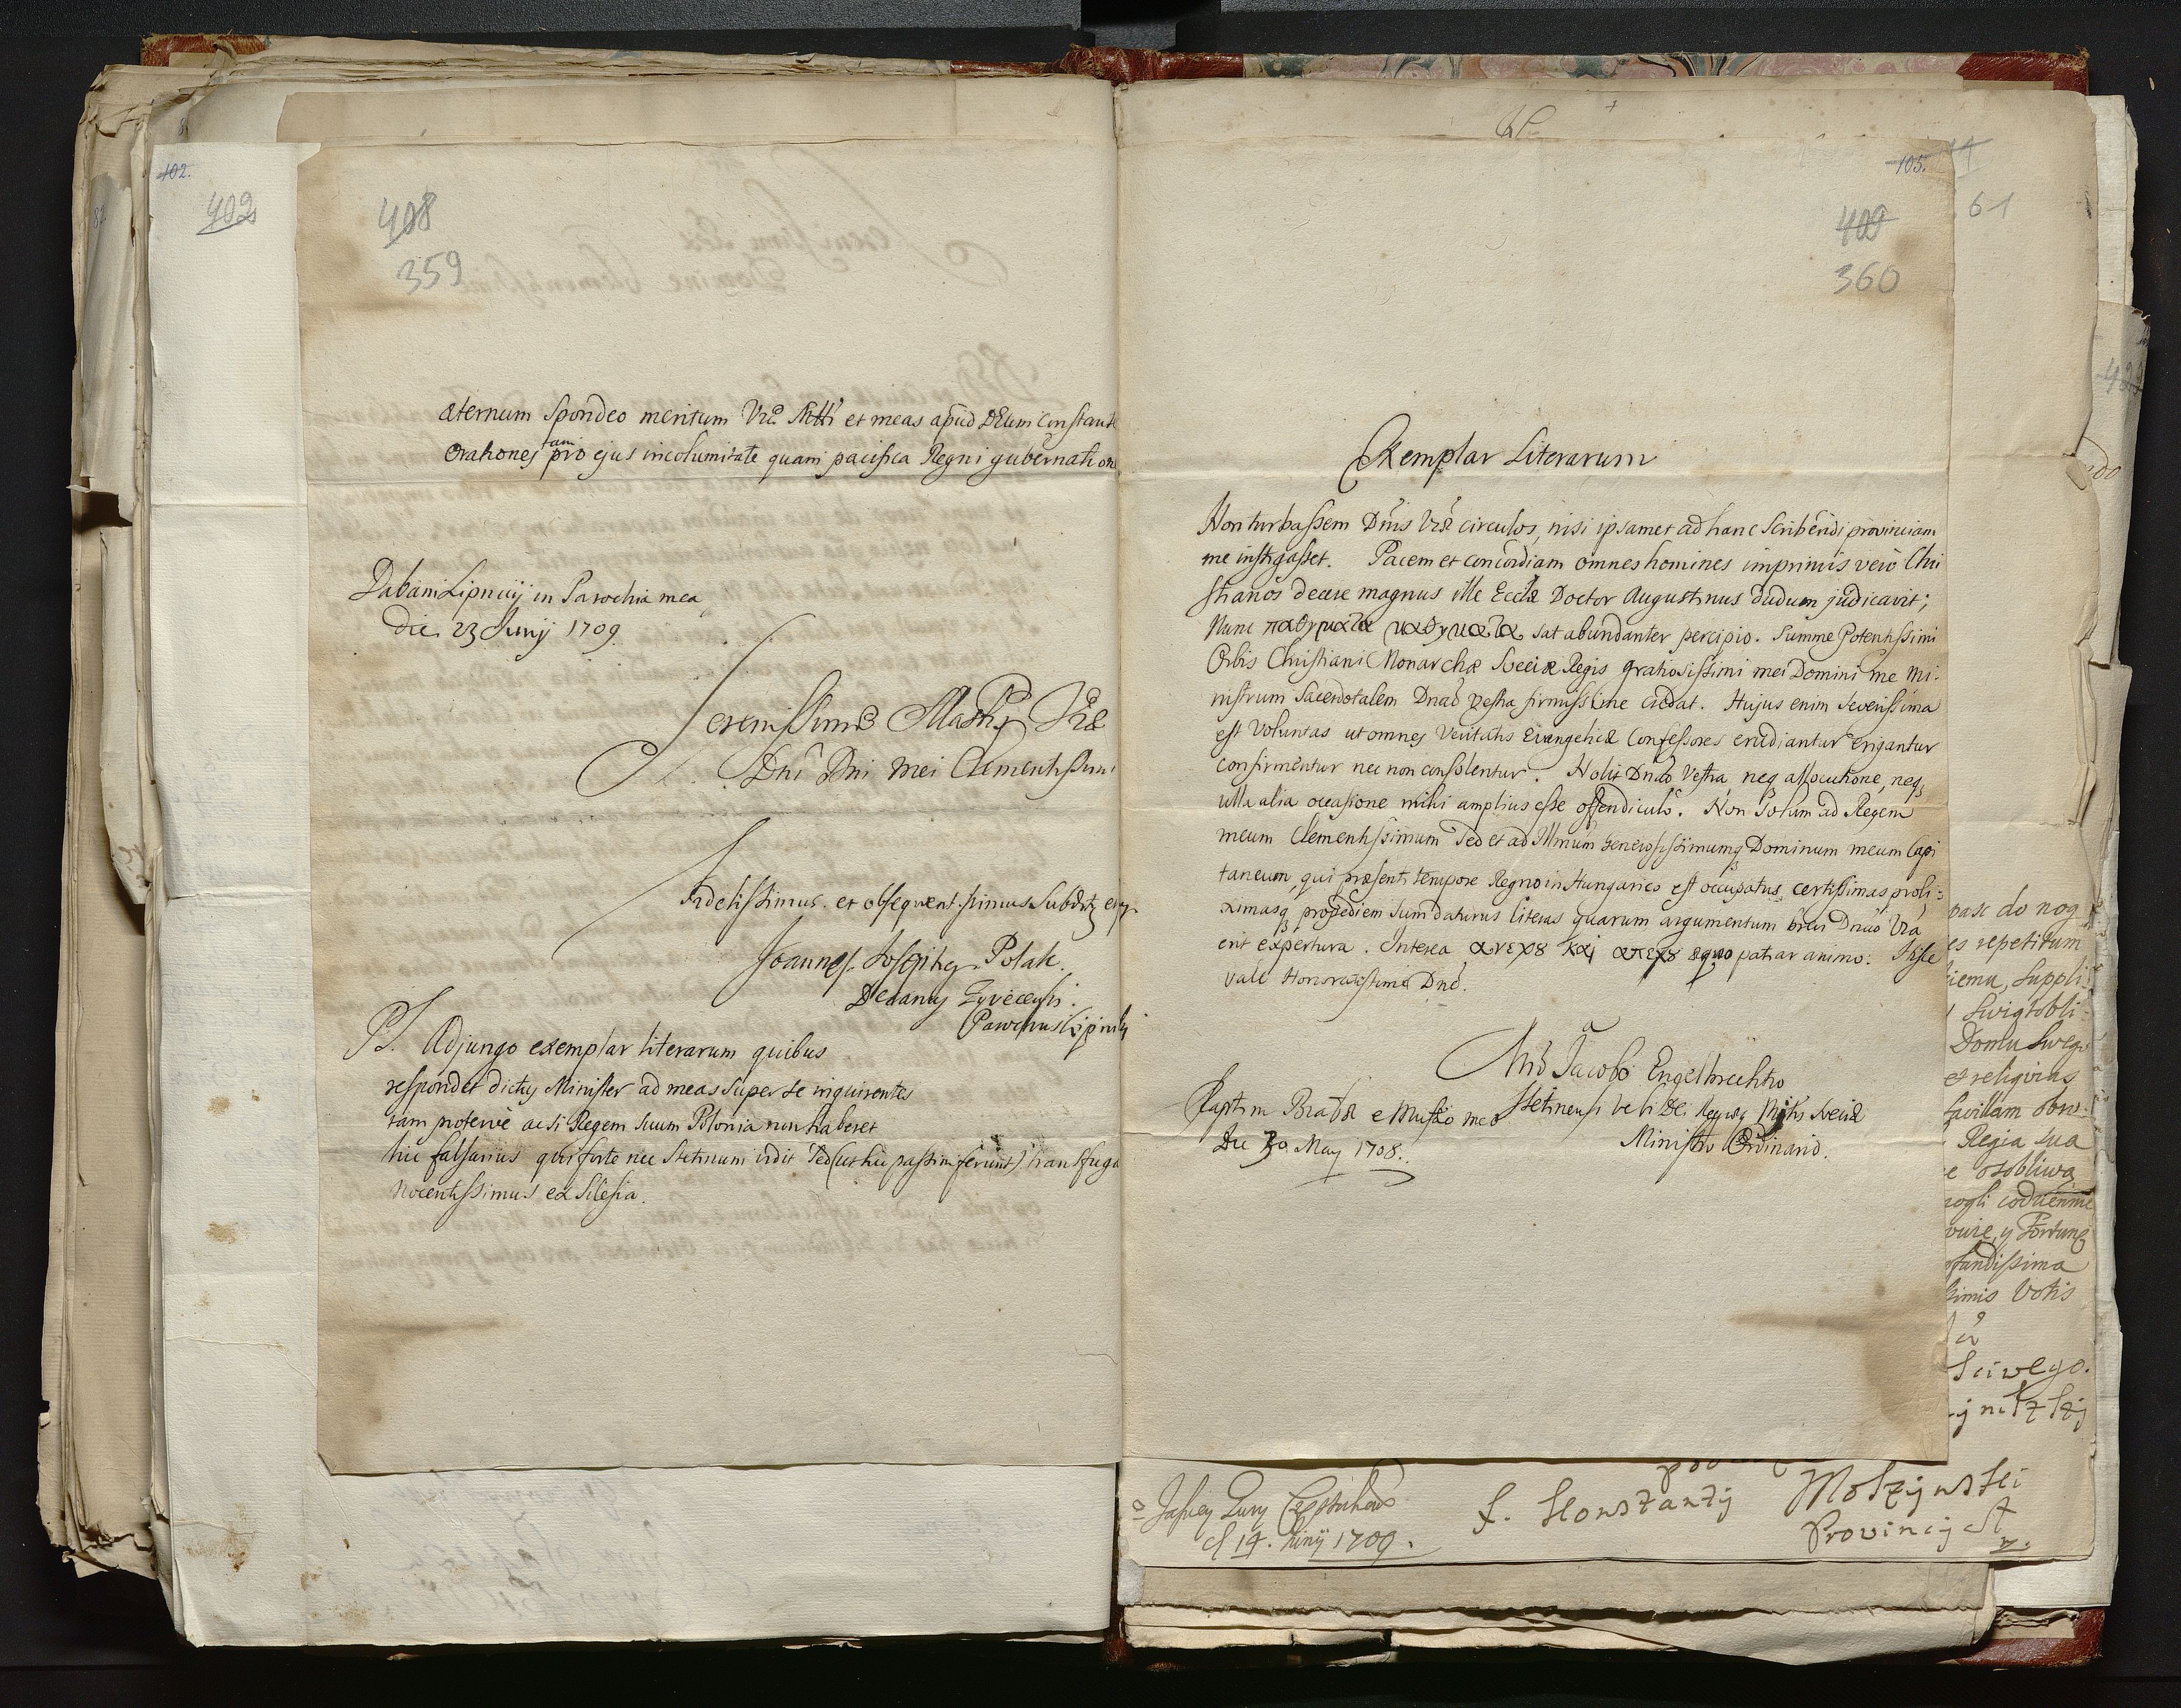 102.
402
87
408
359
æternum Spondeo meritum Vræ Mtti et meas apud DEum Constant
Orationes tam pro ejus incolumitate quam pacifica Regni gubernation
Dabam Lipnicij in Parochia mea
die 23 Junij 1709
Serenissimæ Mattis Vræ
Dni Dni mei Clementissimi
Fidelissimus et obsequentissimus Subditus
Joannes Josephus Polak
Decanus Zyvecensis
Parochus Lipnicij
PS. Adjungo exemplar literarum quibus
respondet dictus Minister ad meas super se inquirentes
tam proterve ac si Regem suum Polonia non haberet
hic falsarius qui forte nec Stetinum vidit sed (ut hic passim ferunt) transfuga
nocentissimus ex Silesia.
105.
409
360
61
Exemplar Literarum
Non turbassem Dnis Vræ circulos, nisi ipsamet ad hanc Scribendi provinciam
me instigasset. Pacem et concordiam omnes homines imprimis vero Chri
stianos decere magnus ille Ecclæ Doctor Augustinus dudum judicavit;
Nunc παθηματα μαθηματα sat abundanter percipio. Summe Potentissimi
Orbis Christiani Monarchæ Sveciæ Regis gratiosissimi mei Domini me Mi-
nistrum Sacerdotalem Dnaō vestra firmissime credat. Hujus enim Severissima
est Voluntas ut omnes Veritatis Evangelicæ Confessores erudiantur erigantur
confirmentur nec non consolentur. Nolit Dnaō Vestra neqꝫ allocutione, neqꝫ
ulla alia occasione mihi amplius esse offendiculo. Non Solum ad Regem
meum Clementissimum Sed et ad Illmum Generosissimumqꝫ Dominum meum Capi
taneum, qui præsenti tempore Regno in Hungarico est occupatus certissimas proli-
ximasqꝫ propediem sum daturus literas quarum argumentum brevi Dnaō Vra
erit expertura. Interea ανεχȣ και απεχȣ æquo patiar animo. Hisce
vale Honoratissime Dne.
Jacobo Engelbrechto
Stetinensi Verbi Dei Regiæ Mttis Sveciæ
Ministro Ordinario.
Raptim e Musæo meo
Die 30 May 1708.
pasc do nog
es repetitum
iemu, suppli-
Swiątobli-
Domu Swego
et religiosas
favillam
Regia sua
e osobliwą
vuie, y Fortunę
fundissima
simis Votis
Sciwego.
Jasney Gury
d 14. Junij 1709.
f. Konstanty Moszynski
Provincy